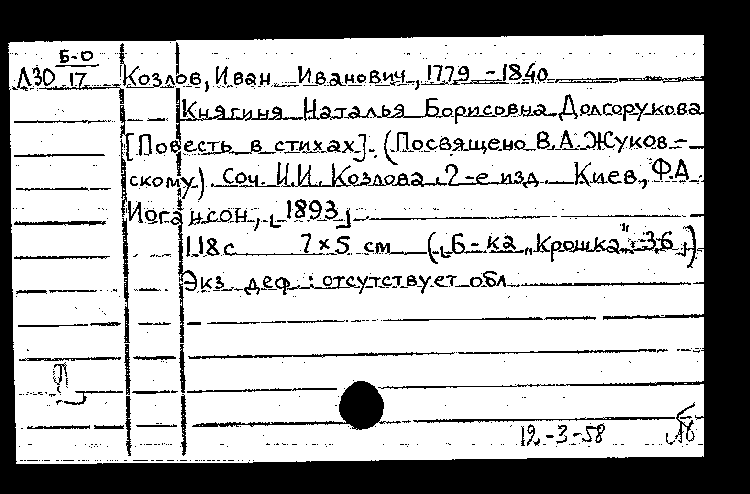 Б-О
Л30 17 Козлов, Иван Иванович, 1779 - 1840
Княгиня Наталья Борисовна Долгорукова
[Повесть в стихах]. (Посвящено В.А. Жуков-
скому). Соч. И.И. Козлова. 2-е изд. Киев, Ф.А.
Иогансон, [1893]
118 с 7 × 5 см ([Б-ка „Крошка" - 36])
Экз. деф.: отсутствует обл.
12-3-58